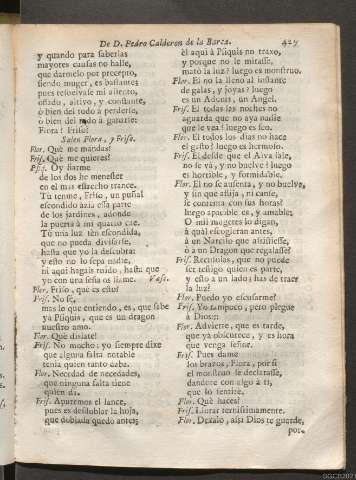 De D. Pedro Calderon de la Barca. 427
y quando para saberlas
mayores causas no halle,
que darmelo por precepto,
siendo muger, es bastante:
pues resuelvase mi aliento,
osado, altivo, y constante,
ò bien del todo à perderse,
ò bien del todo à ganarse:
Flora! Friso!
Salen Flora, y Friso.
Flor. Què me mandas?
Fris. Què me quieres?
Psi. Oy fiarme
de los dos he menester
en el mas estrecho trance.
Tù tenme, Friso, un puñal
escondido àzia essa parte
de los jardines, adonde
la puerta à mi quarto cae.
Tù una luz ten escondida,
que no pueda divisarse,
hasta que yo la descubra:
y esto no lo sepa nadie,
ni aqui hagais ruido, hasta que
yo con una seña os llame. Vase.
Flor. Friso, que es esto?
Fris. No sè,
mas lo que entiendo, es, que sabe
ya Psiquis, que es un dragon
nuestro amo.
Flor. Què dixiste?
Fris. No mucho: yo siempre dixe
que alguna falta notable
tenia quien tanto daba.
Flor. Necedad de necedades,
que ninguna falta tiene
quien dà.
Fris. Apuremos el lance,
pues es desdoblar la hoja,
que doblada quedò antes:
èl aqui à Psiquis no traxo,
y porque no le mirasse,
matò la luz? luego es monstruo.
Flor. El no la llenò al instante
de galas, y joyas? luego
es un Adonis, un Angel.
Fris. El todas las noches no
aguarda que no aya nadie
que le vea? luego es feo.
Flor. El todos los dias no hace
el gasto? luego es hermoso.
Fris. El desde que el Alva sale,
no se và, y no buelve? luego
es horrible, y formidable.
Flor. El no se ausenta, y no buelve,
y sin que aflija, ni canse,
se contenta con sus horas?
luego apacible es, y amable:
O mil mugeres lo digan,
à quàl escogieran antes,
à un Narciso que assistiesse,
ò à un Dragon que regalasse?
Fris. Recusolas, que no puede
ser testigo quien es parte,
y esto à un lado; has de traer
la luz?
Flor. Puedo yo escusarme?
Fris. Yo tampoco, pero plegue
à Dios::
Flor. Advierte, que es tarde,
que ya obscurece, y es hora
que venga señor.
Fris. Pues dame
los brazos, Flora, por si
el monstruo se declarasse,
dandote con algo à ti,
que lo sentirè.
Flor. Què haces?
Fris. Llorar ternissimamente.
Flor. Dexalo, assi Dios te guarde,
por-